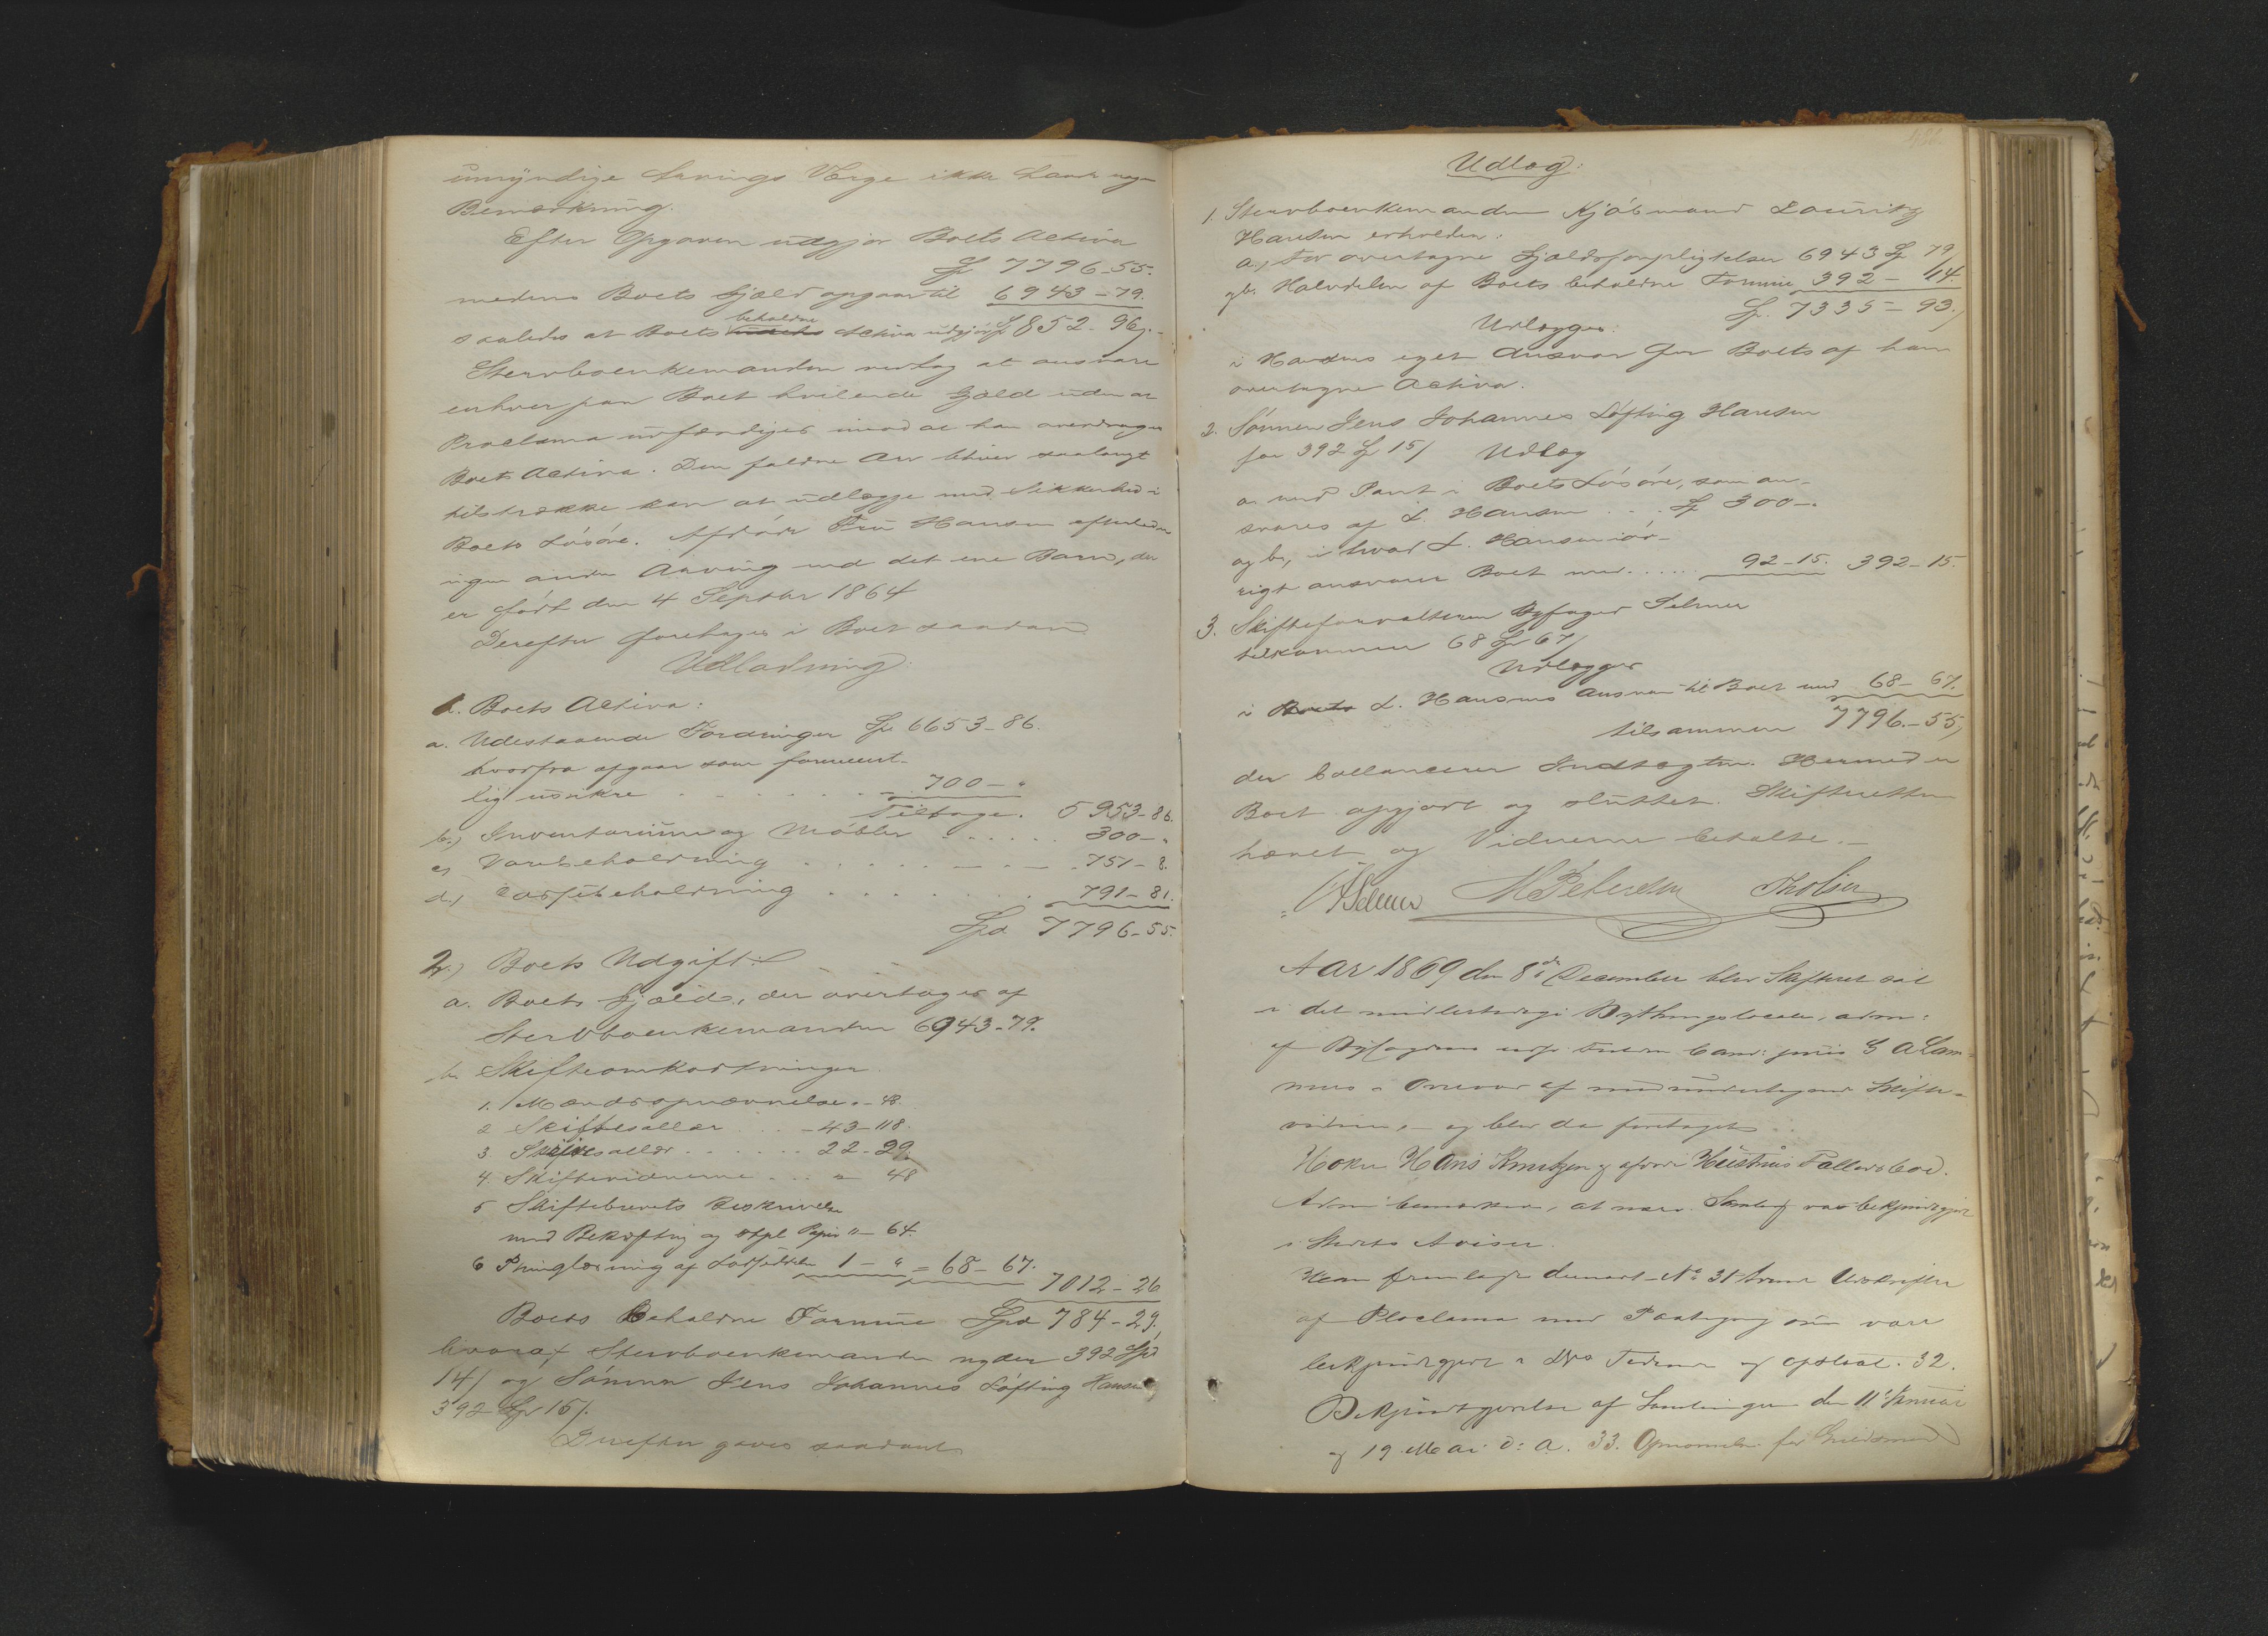 umyndige Arvings Værge ikke havde nogen
Bemærkning.
Efter Opgaven udgjør Boets Activa
Sp 7796-55.
medens Boets Gjæld opgaar til 6943-79.
saaledes at Boets beholdne Activa udgjør Sp 852-96/.-
Stervboenkemanden vedtog at ansvare
enhver paa Boet hvilende Gjæld uden at
Proclama udfærdiges imod at han overdrages
Boets Activa. Den faldne Arv bliver saalangt
tilstrække kan at udlægge med Sikkerhed i
Boets Løsøre. Afdøde Fru Hansen efterlader
ingen anden Arving end det ene Barn, der
er født den 4 Septbr 1864
Derefter foretages i Boet saadan
Udlodning:
1. Boets Activa:
a. Udestaaende Fordringer Sp 6653-86.
hvorfra afgaar som forment-
lig usikre - - - - - - 700-"
Tilbage. 5953-86.
b.) Inventarium og Møbler . . . . . 300-"
c) Varebeholdning . . . . - - - - 751-8.
d.) Cassebeholdning . . . . . . 791-81.
Spd 7796-55.
2.) Boets Udgift:
a. Boets Gjæld, der overtages af
Stervboenkemanden 6943-79.
b. Skifteomkostninger
1. Mændsopnævnelse "-48.
2 Skiftesallær . . . -43-118.
3. Skiftesallær . . . . . . 22-29.
4. Skiftevidnerne . . . " 48
5 Skiftebrevets Beskrivelse
med Bekræftn og stpl. Papir "-64.
6 Thinglæsning af 1-" = 68-67.
7012-26
Boets Beholdne Formue Spd 784-29.
hvoraf Stervboenkemanden nyder 392 Spd
14/ og Sønnen Jens Johannes Løfting Hansen
392 Sp 15/.
Derefter gaves saadant
Udlæg:
1. Stervboenkemanden Kjøbmand Lauritz
Hansen erholder:
a., for overtagne Gjældsforpligtelser 6943 Sp 79/
og b. Halvdelen af Boets beholdne Formue 392-14.
Sp. 7335-93./
Udlægges:
i Hansens eget Ansvar for Boets af ham
overtagne Activa.
2. Sønnen Jens Johannes Løfting Hansen
for 392 Sp 15/ Udlæg
a. med Pant i Boets Løsøre, som an-
svares af L. Hansen . . . Sp 300-.
og b, i hvad L. Hansen iøv-
rigt ansvarer Boet med . . . . . 92-15. 392-15.
3. Skifteforvalteren Byfoged Selmer
tilkommer 68 Sp 67/
Udlægges
i L. Hansens Ansvar til Boet med 68-67.
tilsammen 7796.-55,
der ballancerer Indtægten. Hermed er
Boet opgjort og sluttet. Skifteretten
hævet og Vidnerne betalte.-
Selmer M Petersen
Aar 1869 den 8de December blev Skifteret sat
i det midlertidige Bythingslocale, adm:
af Byfogdens edsv. Fuldm. Cand: juris G A Lam-
mers i Overvær af medundertegnede Skifte-
vidner, - og blev da foretaget . .
Høker Hans Knutzen og afdøde Hustrues Fællesbod.
Adm: bemærker, at nære Samling var bekjendtgjort
i Stedets Aviser.
Han fremlagde dernæst No 31 tvende Udskrifter
af Ploclama med Paategning om være
bekjendtgjort i Nrs Tidende og opslaat. 32.
Bekjendtgjørelse af Samlingen den 11' Januar
og 19. Mai d: A. 33. Opnævnelse for